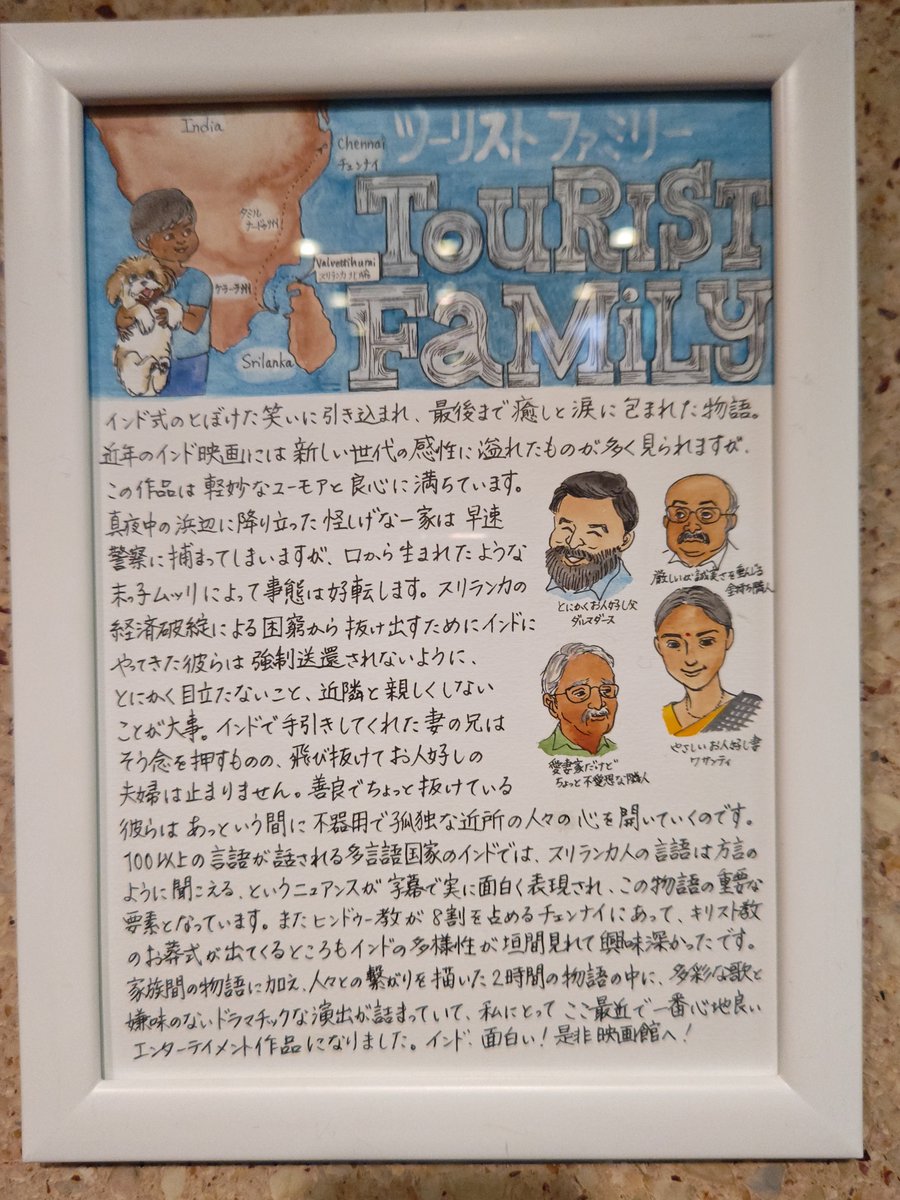 India
Chennai
チェンナイ
タミル
ナードゥ州
Valvettithurai
スリランカ北端
ケーララ州
Srilanka
ツーリスト ファミリー
TOURIST
FAMILY
インド式のとぼけた笑いに引き込まれ、最後まで癒しと涙に包まれた物語。
近年のインド映画には新しい世代の感性に溢れたものが多く見られますが、
この作品は軽妙なユーモアと良心に満ちています。
真夜中の浜辺に降り立った怪しげな一家は早速
警察に捕まってしまいますが、口から生まれたような
末っ子ムッリによって事態は好転します。スリランカの
経済破綻による困窮から抜け出すためにインドに
やってきた彼らは強制送還されないように、
とにかく目立たないこと、近隣と親しくしない
ことが大事。インドで手引きしてくれた妻の兄は
そう念を押すものの、飛び抜けてお人好しの
夫婦は止まりません。善良でちょっと抜けている
彼らはあっという間に不器用で孤独な近所の人々の心を開いていくのです。
100以上の言語が話される多言語国家のインドでは、スリランカ人の言語は方言の
ように聞こえる、というニュアンスが字幕で実に面白く表現され、この物語の重要な
要素となっています。またヒンドゥー教が8割を占めるチェンナイにあって、キリスト教
のお葬式が出てくるところもインドの多様性が垣間見れて興味深かったです。
家族間の物語に加え、人々との繋がりを描いた2時間の物語の中に、多彩な歌と
嫌味のないドラマチックな演出が詰まっていて、私にとってここ最近で一番心地良い
エンターテイメント作品になりました。インド、面白い！是非映画館へ！
とにかくお人好し父
ダルマダース
厳しいが誠実さを重んじる
金持ち隣人
愛妻家だけど
ちょっと不愛想な隣人
やさしいお人好し妻
ワサンティ